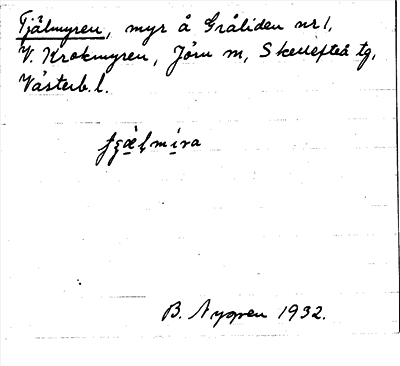 Tjälmyren, myr å Gråliden nr 1,
V. Krokmyren, Jörn sn, Skellefteå tg,
Västerb. l.
B. Nygren 1932.